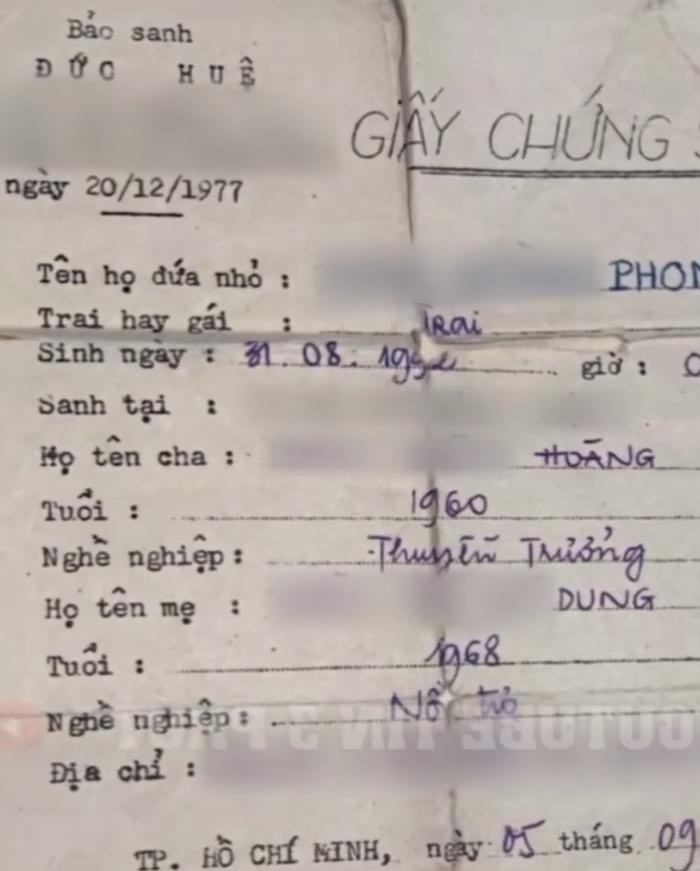 Bảo sanh
ĐỨC HUỆ
GIẤY CHỨNG
ngày 20/12/1977
Tên họ đứa nhỏ : PHON
Trai hay gái : Trai
Sinh ngày : 31.08. giờ :
Sanh tại :
Họ tên cha : HOÀNG
Tuổi : 1960
Nghề nghiệp: Thuyền Trưởng
Họ tên mẹ : DUNG
Tuổi : 1968
Nghề nghiệp: Nội trợ
YOUTUBE TIN 3 PHÚT
Địa chỉ :
TP. HỒ CHÍ MINH, ngày 05 tháng 09